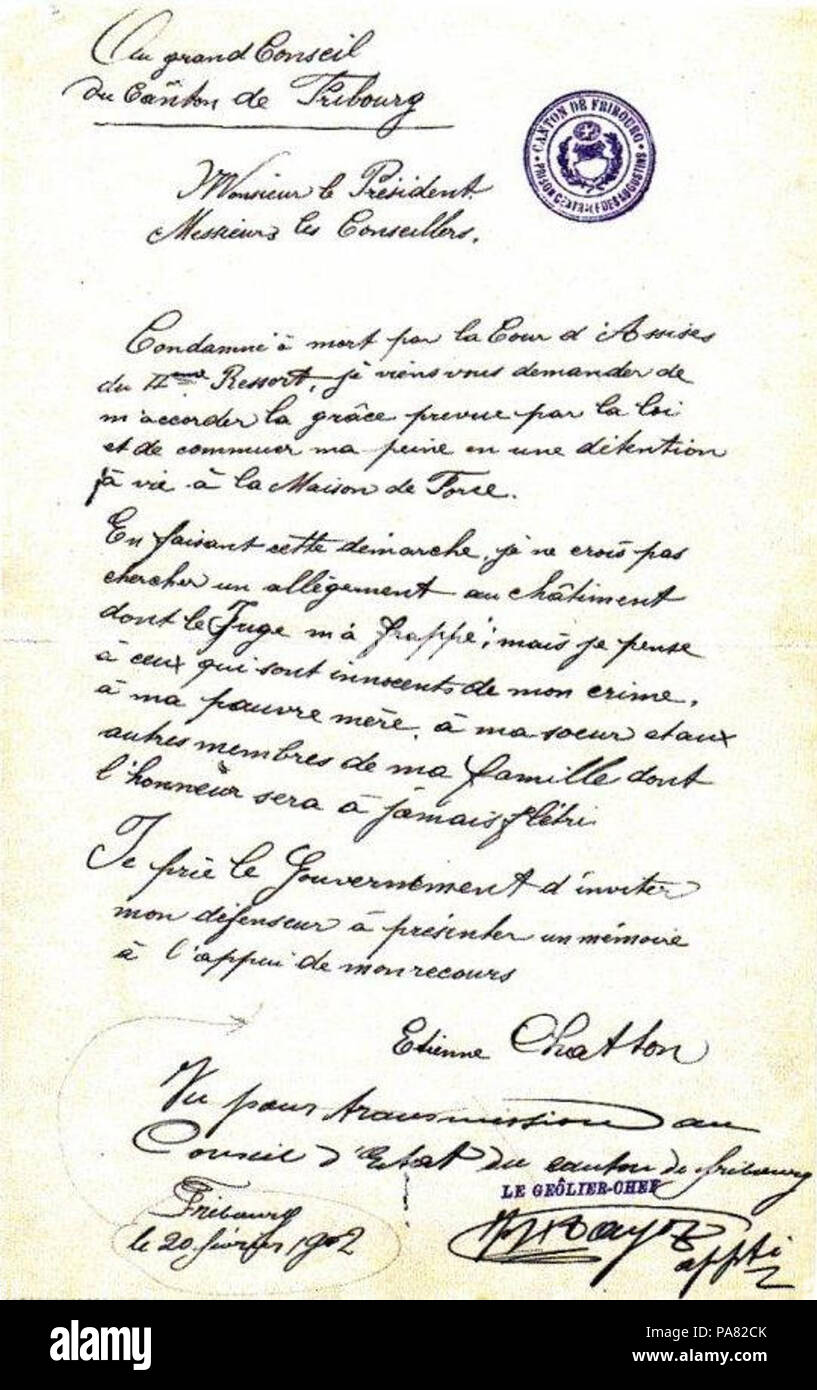 Au grand Conseil
du Canton de Fribourg
CANTON DE FRIBOURG
PRISON CENTRALE DES AUGUSTINS
Monsieur le Président
Messieurs les Conseillers,
Condamné à mort par la Cour d'Assises
du IIème Ressort, je viens vous demander de
m'accorder la grâce prevue par la loi
et de commuer ma peine en une détention
à vie à la Maison de Force.
En faisant cette démarche, je ne crois pas
chercher un allégement au châtiment
dont le Juge m'a frappé; mais je pense
à ceux qui sont innocents de mon crime,
à ma pauvre mère, à ma soeur et aux
autres membres de ma famille dont
l'honneur sera à jamais flétri.
Je prie le Gouvernement d'inviter
mon défenseur à présenter un mémoire
à l'appui de mon recours
Etienne Chatton
Vu pour transmission au
Conseil d'Etat du canton de fribourg
LE GEÔLIER-CHEF
Fribourg
le 20 février 1902
alamy
Image ID: PA82CK
www.alamy.com